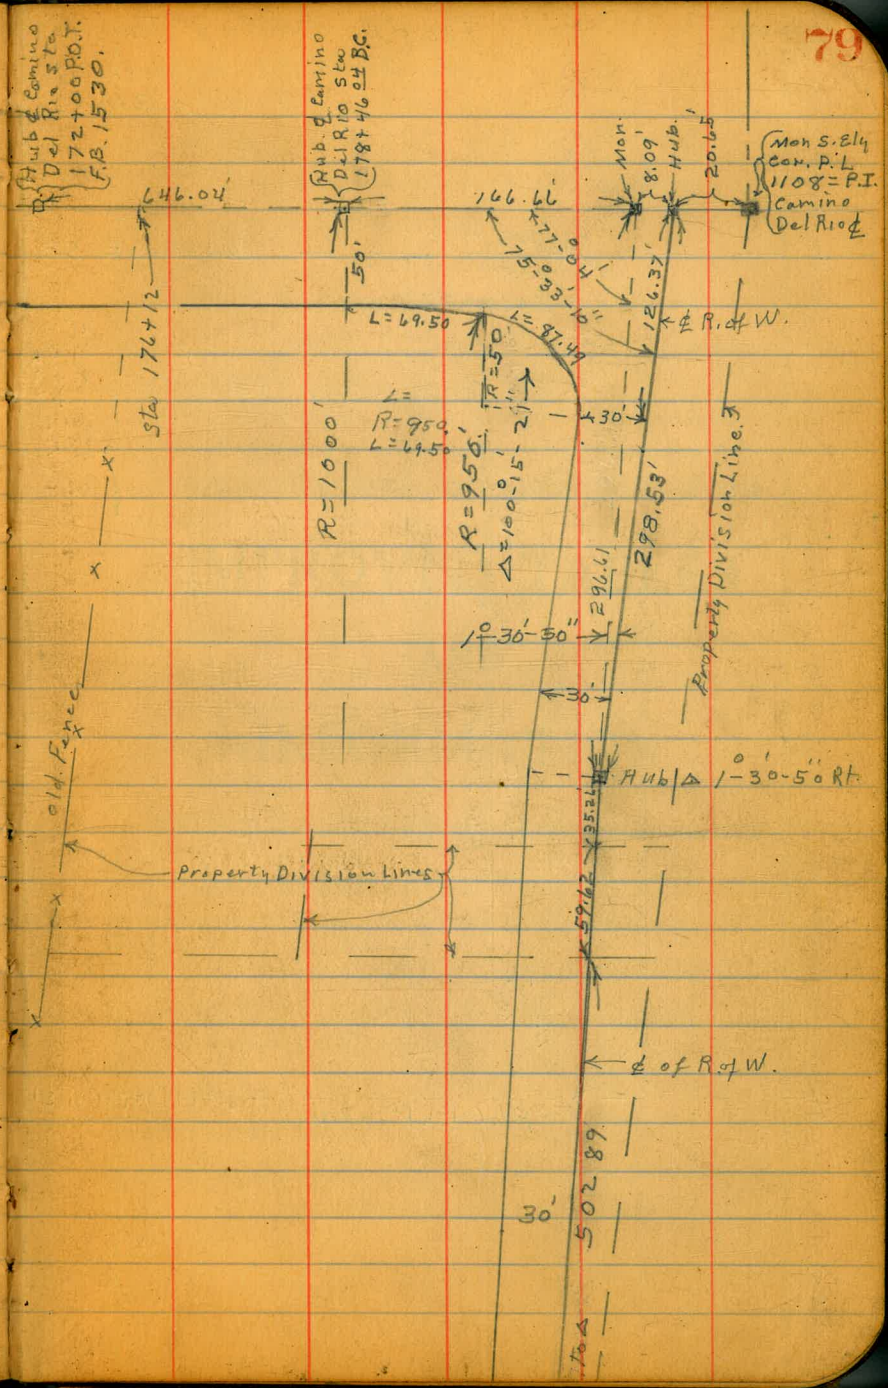 79
Hub ¢ Camino
Del Rio Sta
172+00 P.O.T.
F.B. 1530.
Hub. ¢ Camino
Del Rio Sta
178+46 04 B.C.
Mon.
8.09'
Hub.
20.65'
Mon S. Ely
Cor. P.L
1108 = P.I.
Camino
Del Rio ¢
646.04'
166.66'
50'
77°-04'
75°-33'-10"
126.37'
¢ R. of W.
Sta 176+12
L=69.50
L= 87.49
R=50
L=
R=950.
L=69.50
R=1000'
R=950.'
Δ=100°-15'-21"
30'
298.53'
296.61
Property Division Line
1°-30'-50"
30'
Old Fence
Hub Δ 1°-30'-50" Rt.
35.26
Property Division Lines
59.62
¢ of R. of W.
30'
502 89
to Δ